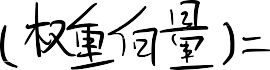 (权重向量)=